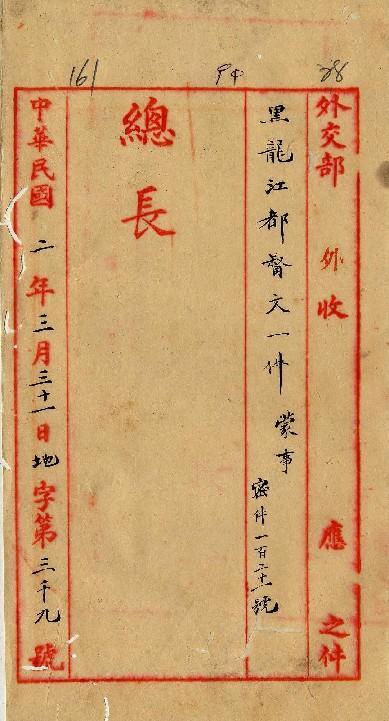 161
28
外交部 外收 應 之件
黑龍江都督文一件 蒙事
密件一百二十一號
總長
中華民國二年三月三十一日地字第三千九號